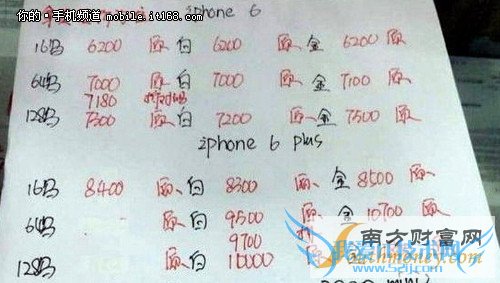 你的·手机频道 mobile.it168.com
iphone 6
16G 6200 原、白 6200 原、金 6200 原
64G 7000 原、白 7000 原、金 7100 原
7180
128G 7300 原、白 7200 原、金 7500 原
iphone 6 plus
16G 8400 原、白 8300 原、金 8500 原
64G 原、白 9500 原、金 10700 原
9700
128G 原、白 10000
南方财富网
southmoney.com
www.52ij.com